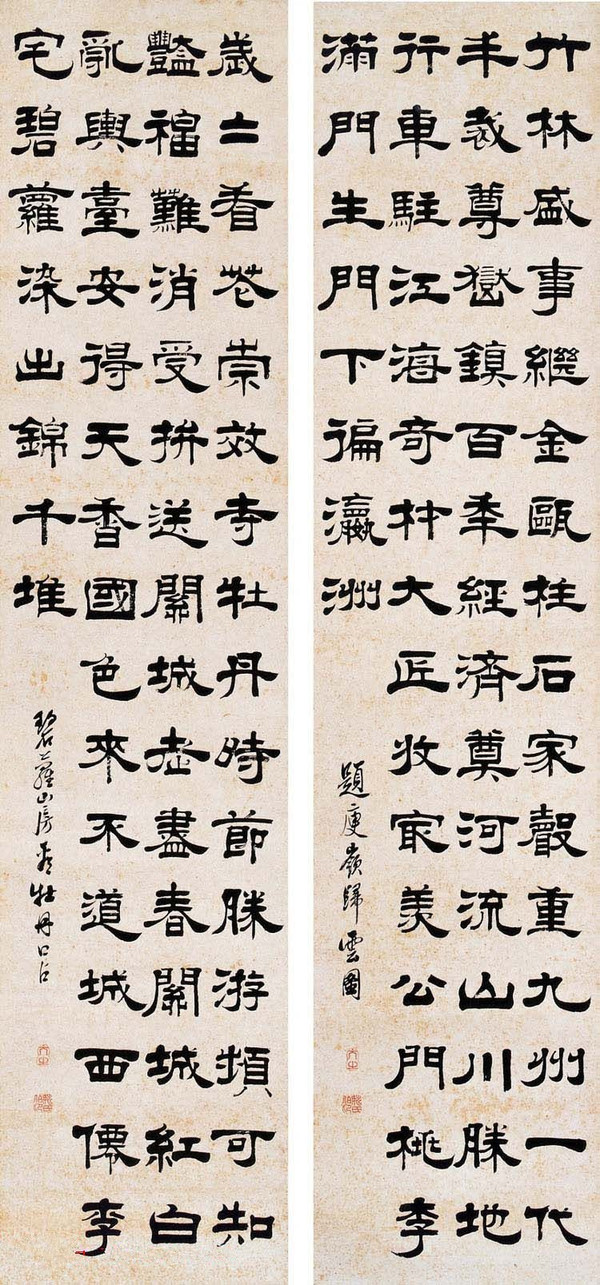 竹林盛事繼金甌柱石家聲重九州一代
丰裁尊嶽鎮百年經濟奠河流山川勝地
行車駐江海奇材大匠收最羨公門桃李
滿門生門下徧瀛洲
題庾嶺歸雲圖
歲二看花崇效寺牡丹時節勝游頻可知
豔福難消受拚送關城老盡春關城紅白
亂輿臺安得天香國色來不道城西僊李
宅碧蘿染出錦千堆
碧蘿山房看牡丹口占